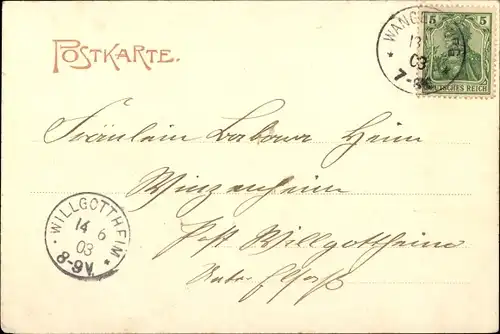 POSTKARTE.
5 5
DEUTSCHES REICH
WANGE
13
03
7-8
Fräulein Barbara Heim
Winzenheim
Post Willgottheim
Unter Elsass
WILLGOTTHEIM
14 6
03
8-9V.